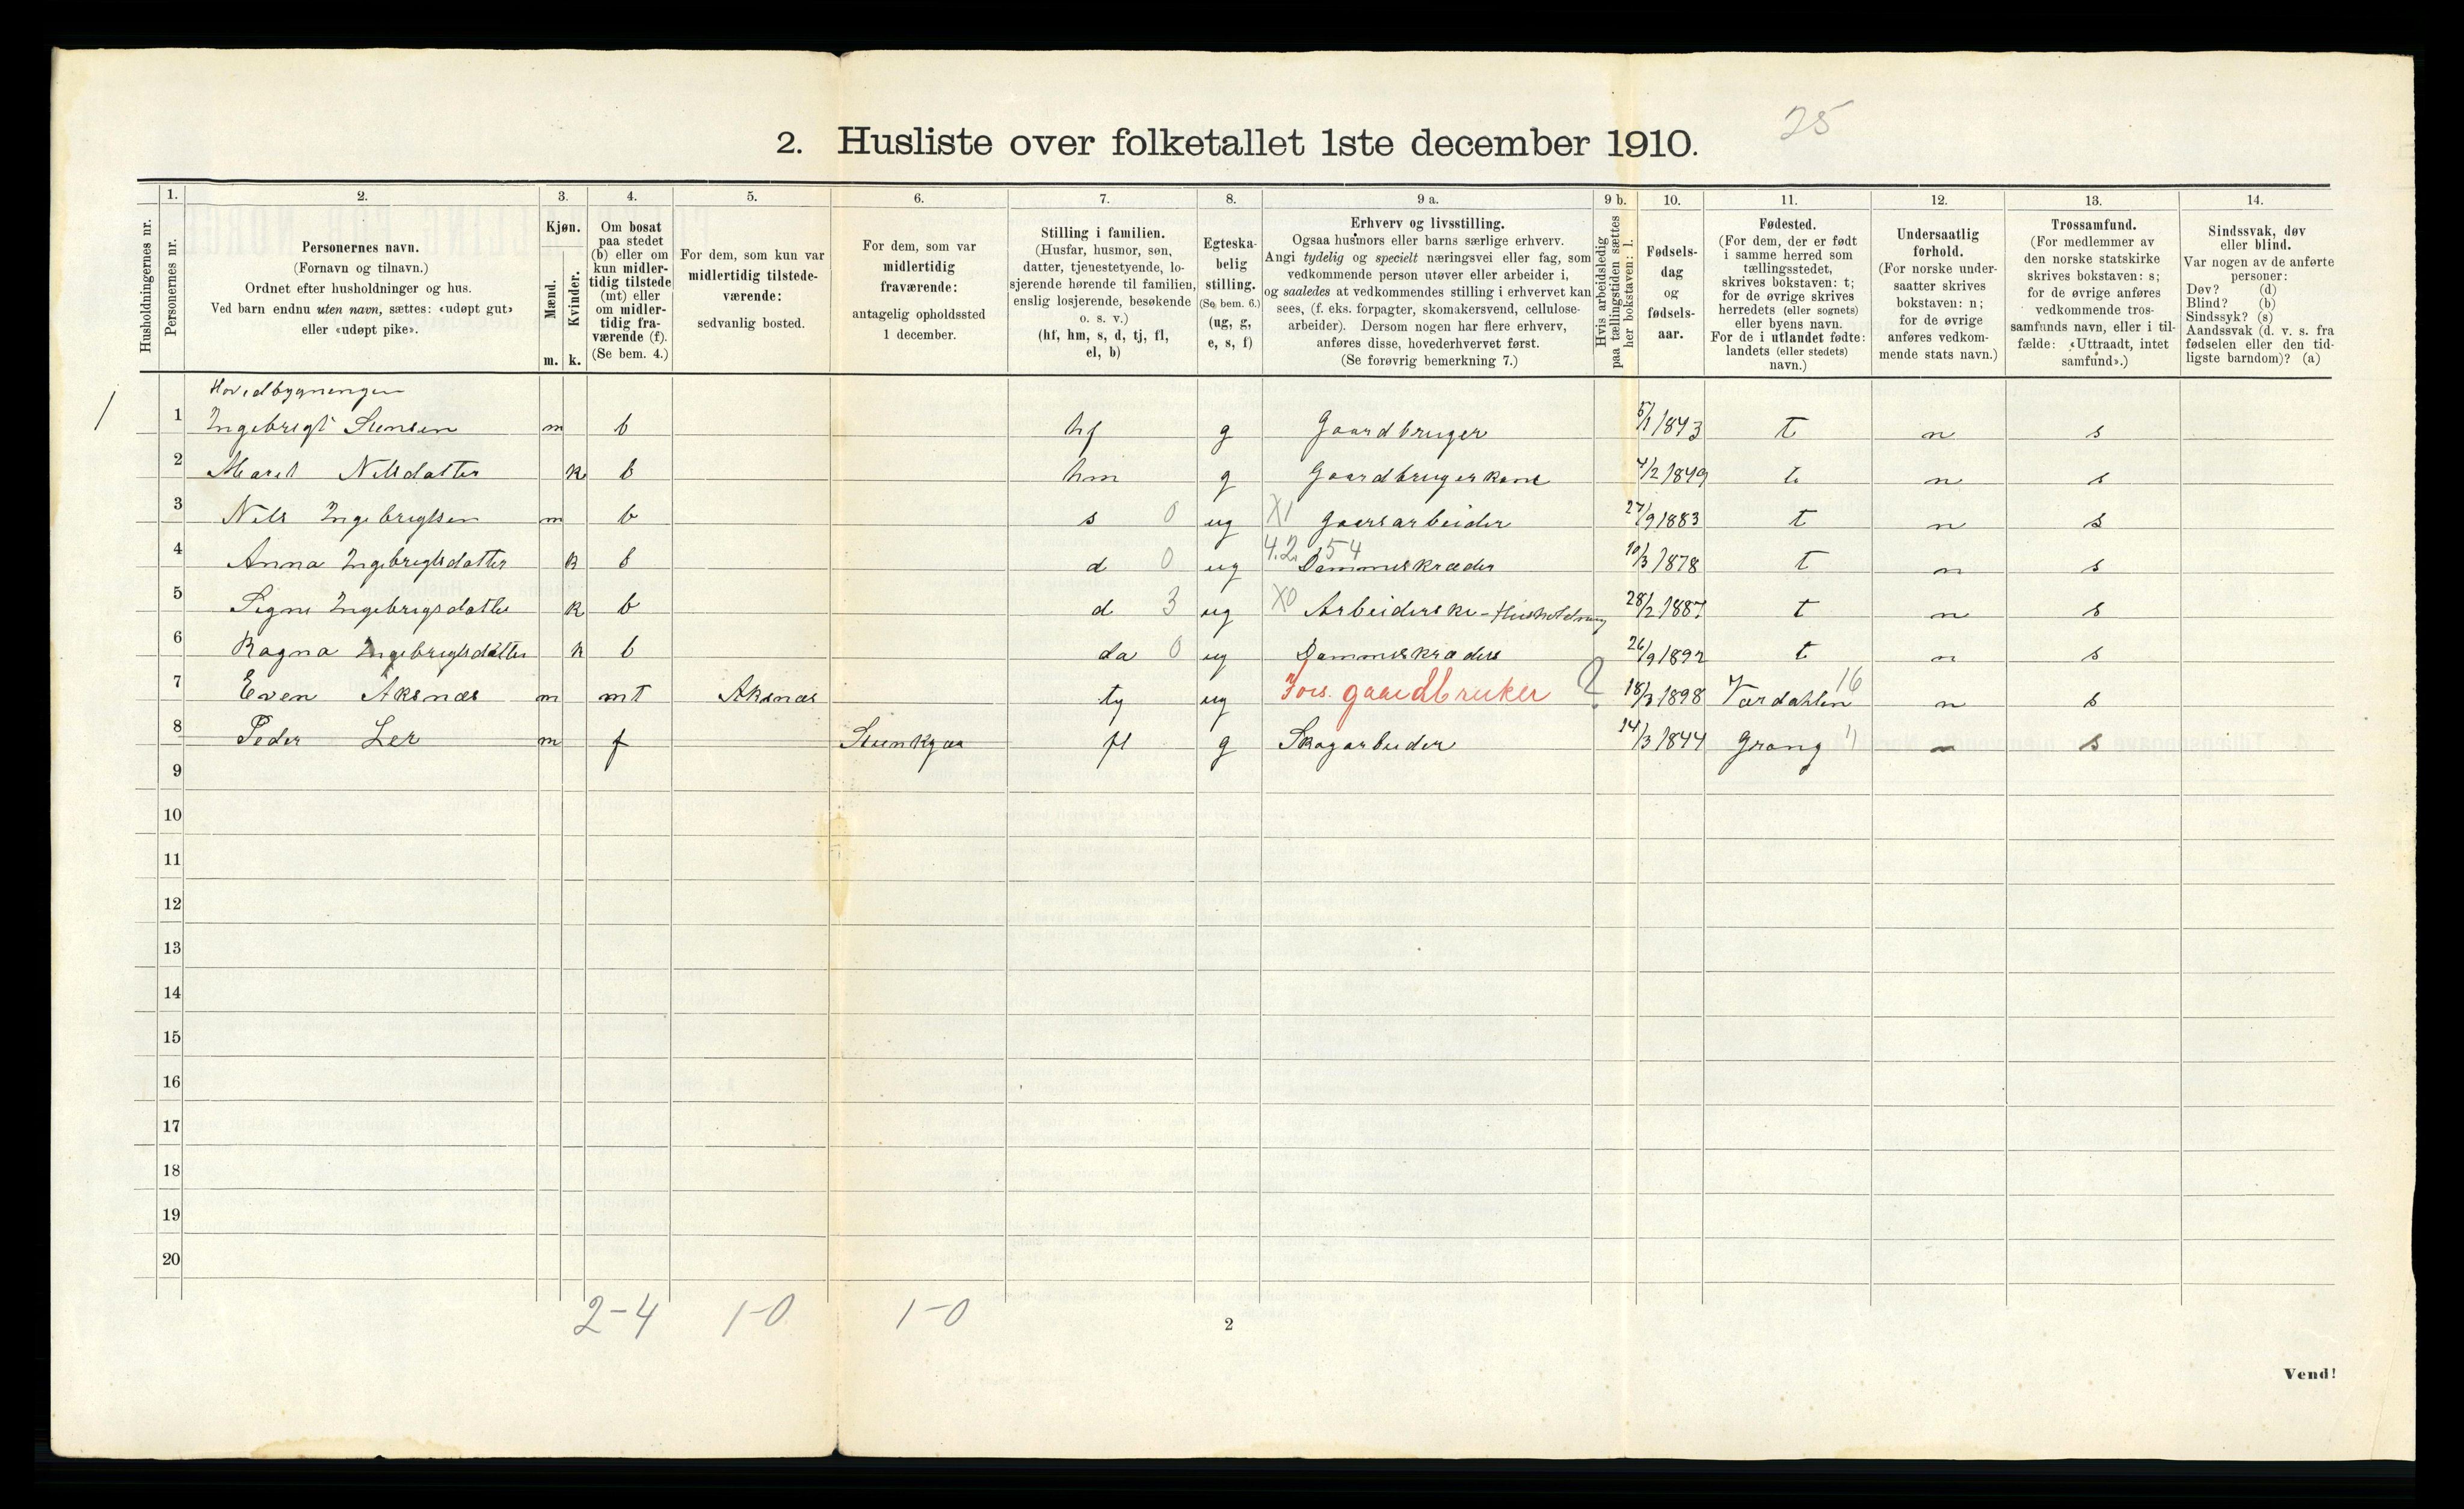 25
2. Husliste over folketallet 1ste december 1910.
Husholdningernes nr.
1.
Personernes nr.
2.
Personernes navn.
(Fornavn og tilnavn.)
Ordnet efter husholdninger og hus.
Ved barn endnu uten navn, sættes: «udøpt gut»
eller «udøpt pike».
3.
Kjøn.
Mænd.
Kvinder.
m. k.
4.
Om bosat
paa stedet
(b) eller om
kun midler-
tidig tilstede
(mt) eller
om midler-
tidig fra-
værende (f).
(Se bem. 4.)
5.
For dem, som kun var
midlertidig tilstede-
værende:
sedvanlig bosted.
6.
For dem, som var
midlertidig
fraværende:
antagelig opholdssted
1 december.
7.
Stilling i familien.
(Husfar, husmor, søn,
datter, tjenestetyende, lo-
sjerende hørende til familien,
enslig losjerende, besøkende
o. s. v.)
(hf, hm, s, d, tj, fl,
el, b)
8.
Egteska-
belig
stilling.
(Se bem. 6.)
(ug, g,
e, s, f)
9 a.
Erhverv og livsstilling.
Ogsaa husmors eller barns særlige erhverv.
Angi tydelig og specielt næringsvei eller fag, som
vedkommende person utøver eller arbeider i,
og saaledes at vedkommendes stilling i erhvervet kan
sees, (f. eks. forpagter, skomakersvend, cellulose-
arbeider). Dersom nogen har flere erhverv,
anføres disse, hovederhvervet først.
(Se forøvrig bemerkning 7.)
9 b.
Hvis arbeidsledig
paa tællingstiden sættes
her bokstaven: l.
10.
Fødsels-
dag
og
fødsels-
aar.
11.
Fødested.
(For dem, der er født
i samme herred som
tællingsstedet,
skrives bokstaven: t;
for de øvrige skrives
herredets (eller sognets)
eller byens navn.
For de i utlandet fødte:
landets (eller stedets)
navn.)
12.
Undersaatlig
forhold.
(For norske under-
saatter skrives
bokstaven: n;
for de øvrige
anføres vedkom-
mende stats navn.)
13.
Trossamfund.
(For medlemmer av
den norske statskirke
skrives bokstaven: s;
for de øvrige anføres
vedkommende tros-
samfunds navn, eller i til-
fælde: «Uttraadt, intet
samfund».)
14.
Sindssvak, døv
eller blind.
Var nogen av de anførte
personer:
Døv? (d)
Blind? (b)
Sindssyk? (s)
Aandssvak (d. v. s. fra
fødselen eller den tid-
ligste barndom)? (a)
Hovedbygningen
1 Ingebrigt Stensen m b hf g Gaardbruger 5/1 1843 t n s
2 Maret Nilsdatter k b hm g Gaardbrugerkone 4/2 1849 t n s
3 Nils Ingebrigtsen m b s 0 ug X1 Gaarsarbeider 27/9 1883 t n s
4 Anna Ingebrigtsdatter k b d 0 ug 4.2. 54 Dammeskræder 10/3 1878 t n s
5 Signe Ingebrigsdatter k b d 3 ug X0 Arbeiderske - Husholdning 28/2 1887 t n s
6 Ragna Ingebrigtsdatter k b da 0 ug Dammeskræders 26/9 1892 t n s
7 Even Aksnæs m mt Aksnæs ty ug Fors. gaardbruker ? 18/3 1898 Værdahlen 16 n s
8 Peder Ler m f Steenkjær fl g Skogarbeider 14/3 1844 Grong n s
9
10
11
12
13
14
15
16
17
18
19
20
2-4 1-0 1-0
2
Vend!